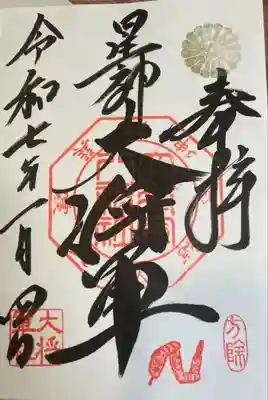 奉拝
大将軍
令和七年一月四日
方除
大将